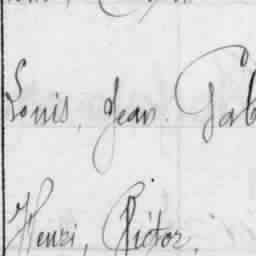 Louis, Jean. Gab
Henri, Victor,